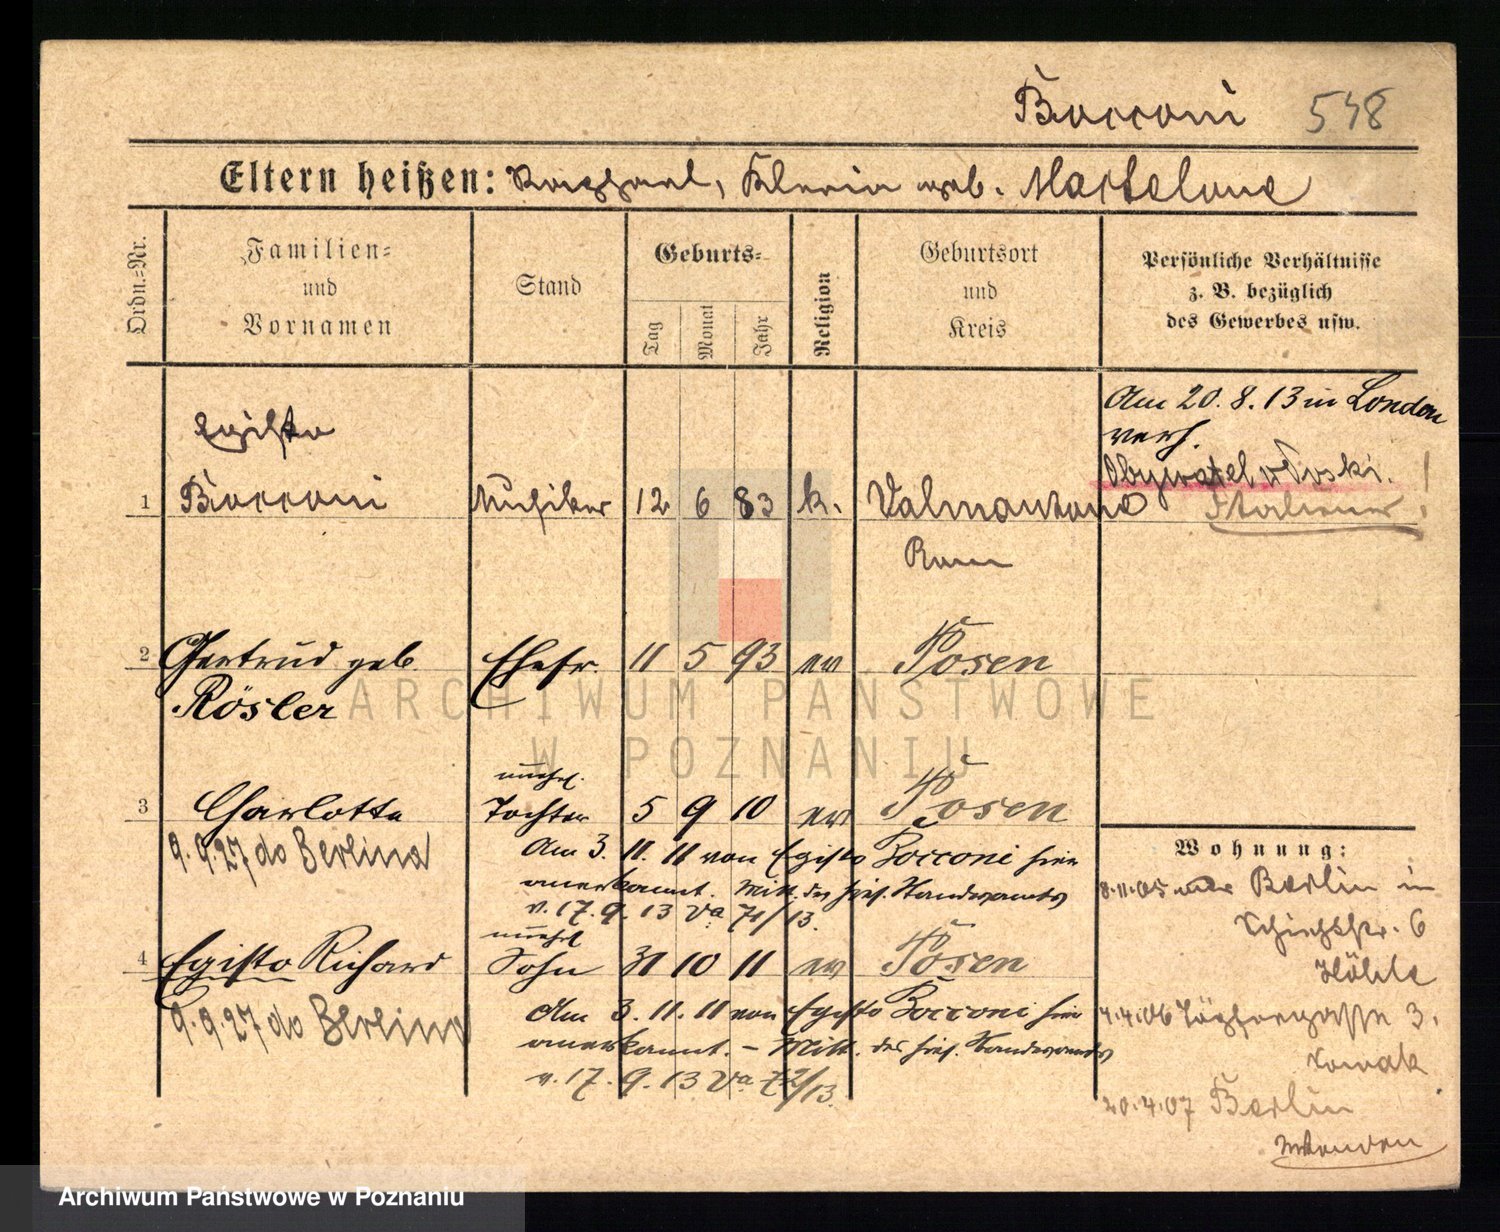 Bocconi 548
Eltern heißen: Raphael, Klevia geb. Martelone
Ordn.=Nr.
Familien=
und
Vornamen
Stand
Geburts=
Tag
Monat
Jahr
Religion
Geburtsort
und
Kreis
Persönliche Verhältnisse
z. B. bezüglich
des Gewerbes usw.
Am 20. 8. 13 in London
verh.
Obywatel włoski. !
Italiener!
Egisto
1 Bocconi Musiker 12 6 83 k. Valmontone
Rom
2 Gertrud geb. Ehefr. 11 5 93 ev Posen
Rösler
ARCHIWUM PAŃSTWOWE
W POZNANIU
unehel.
3 Charlotte Tochter 5 9 10 ev Posen
9.9.27 do Berlina
Am 3. 11. 11 von Egisto Bocconi hier
anerkannt. Mitt. des hies. Standesamts
v. 17. 9. 13 Va 71/13.
unehel
4 Egisto Richard Sohn 31 10 11 ev Posen
9.9.27 do Berlina
Am 3. 11. 11 von Egisto Bocconi hier
anerkannt. – Mitt. des hies. Standesamts
v. 17. 9. 13 Va 72/13.
Wohnung:
8.11.05 Berlin in
6
4.4.06 3.
Nowak
20.4.07 Berlin
Archiwum Państwowe w Poznaniu